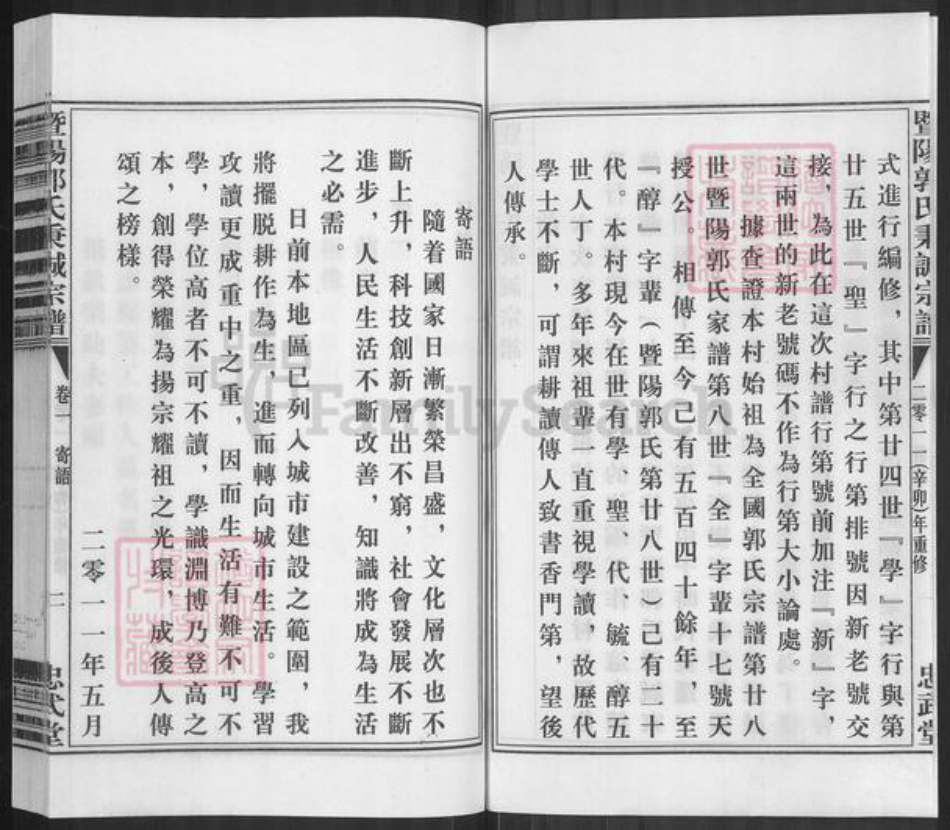 暨陽郭氏秉誠宗譜
二零一一(辛卯)年重修
忠武堂
式進行編修，其中第廿四世『學』字行與第
廿五世『聖』字行之行第排號因新老號交
接，為此在這次村譜行第號前加注『新』字，
這兩世的新老號碼不作為行第大小論處。
據查證本村始祖為全國郭氏宗譜第廿八
世暨陽郭氏家譜第八世『全』字輩十七號天
授公。相傳至今己有五百四十餘年，至
『醇』字輩（暨陽郭氏第廿八世）己有二十
代。本村現今在世有學、聖、代、毓、醇五
世人丁。多年來祖輩一直重視學讀，故歷代
學士不斷，可謂耕讀傳人致書香門第，望後
人傳承。
寄語
隨着國家日漸繁榮昌盛，文化層次也不
斷上升，科技創新層出不窮，社會發展不斷
進步，人民生活不斷改善，知識將成為生活
之必需。
日前本地區已列入城市建設之範圍，我
將擺脱耕作為生，進而轉向城市生活。學習
攻讀更成重中之重，因而生活有難不可不
學，學位高者不可不讀，學識淵博乃登高之
本，創得榮耀為揚宗耀祖之光環，成後人傳
頌之榜樣。
二零一一年五月
暨陽郭氏秉誠宗譜
卷一
寄語
二
忠武堂
FamilySearch